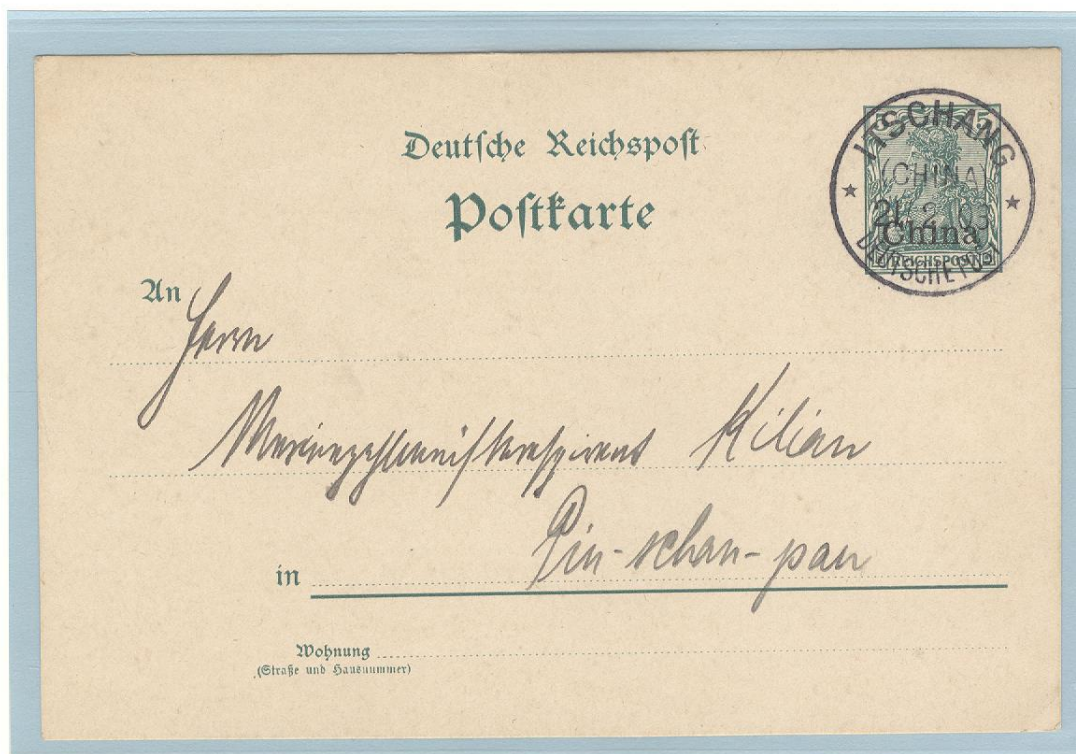 Deutsche Reichspost
Postkarte
5 5
China
REICHSPOST
ITSCHANG
(CHINA)
21.2.03
DEUTSCHE POST
An Herrn
Marinezahlmeisteraspirant Kilian
in Pin-schan-pan
Wohnung
(Straße und Hausnummer)